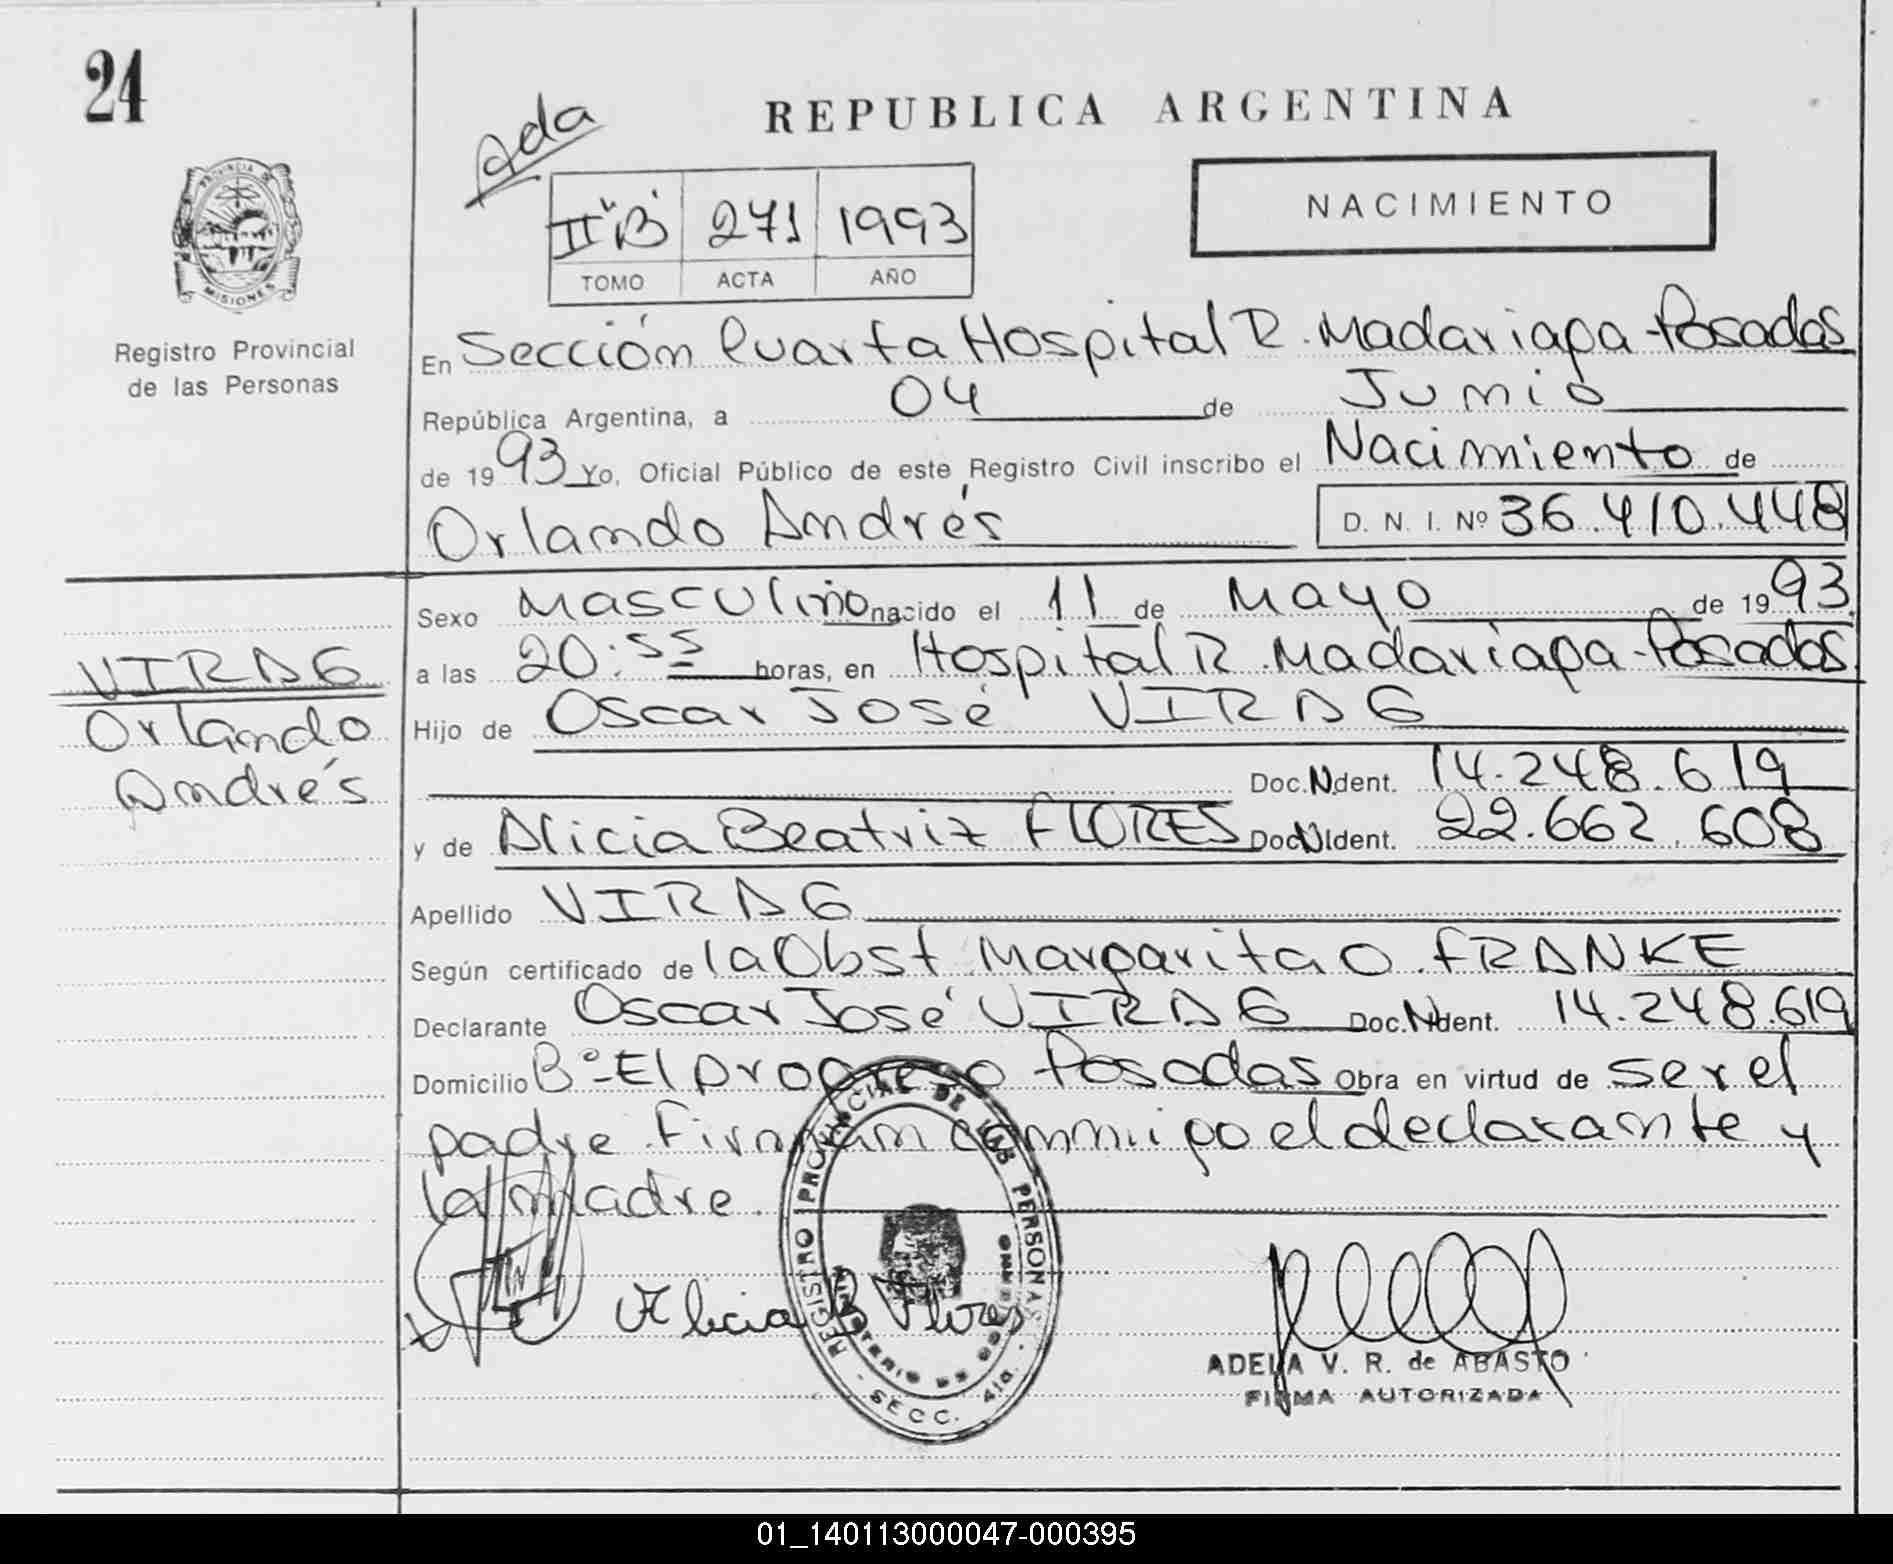 24
REPUBLICA ARGENTINA
Ada
PROVINCIA DE
MISIONES
Registro Provincial
de las Personas
II "B" 271 1993
TOMO ACTA AÑO
NACIMIENTO
En Sección Cuarta Hospital R. Madariaga - Posadas
República Argentina, a 04 de Junio
de 1993 Yo, Oficial Público de este Registro Civil inscribo el Nacimiento de
Orlando Andrés D. N. I. Nº 36.410.448
Sexo Masculino nacido el 11 de Mayo de 1993.
a las 20:55 horas, en Hospital R. Madariaga - Posadas
Hijo de Oscar José VIRAG
Doc. N. Ident. 14.248.619
y de Alicia Beatriz FLORES Doc. N. Ident. 22.662.608
Apellido VIRAG
Según certificado de la Obst Margarita O. FRANKE
Declarante Oscar José VIRAG Doc. N. Ident. 14.248.619
Domicilio Bº - El progreso Posadas Obra en virtud de ser el
padre. Firman conmigo el declarante y
la madre.
VIRAG
Orlando
Andrés
Alicia B Flores
REGISTRO PROVINCIAL DE LAS PERSONAS
MINISTERIO DE GOBIERNO
- SECC. 4ta. -
ADELA V. R. de ABASTO
FIRMA AUTORIZADA
01_140113000047-000395